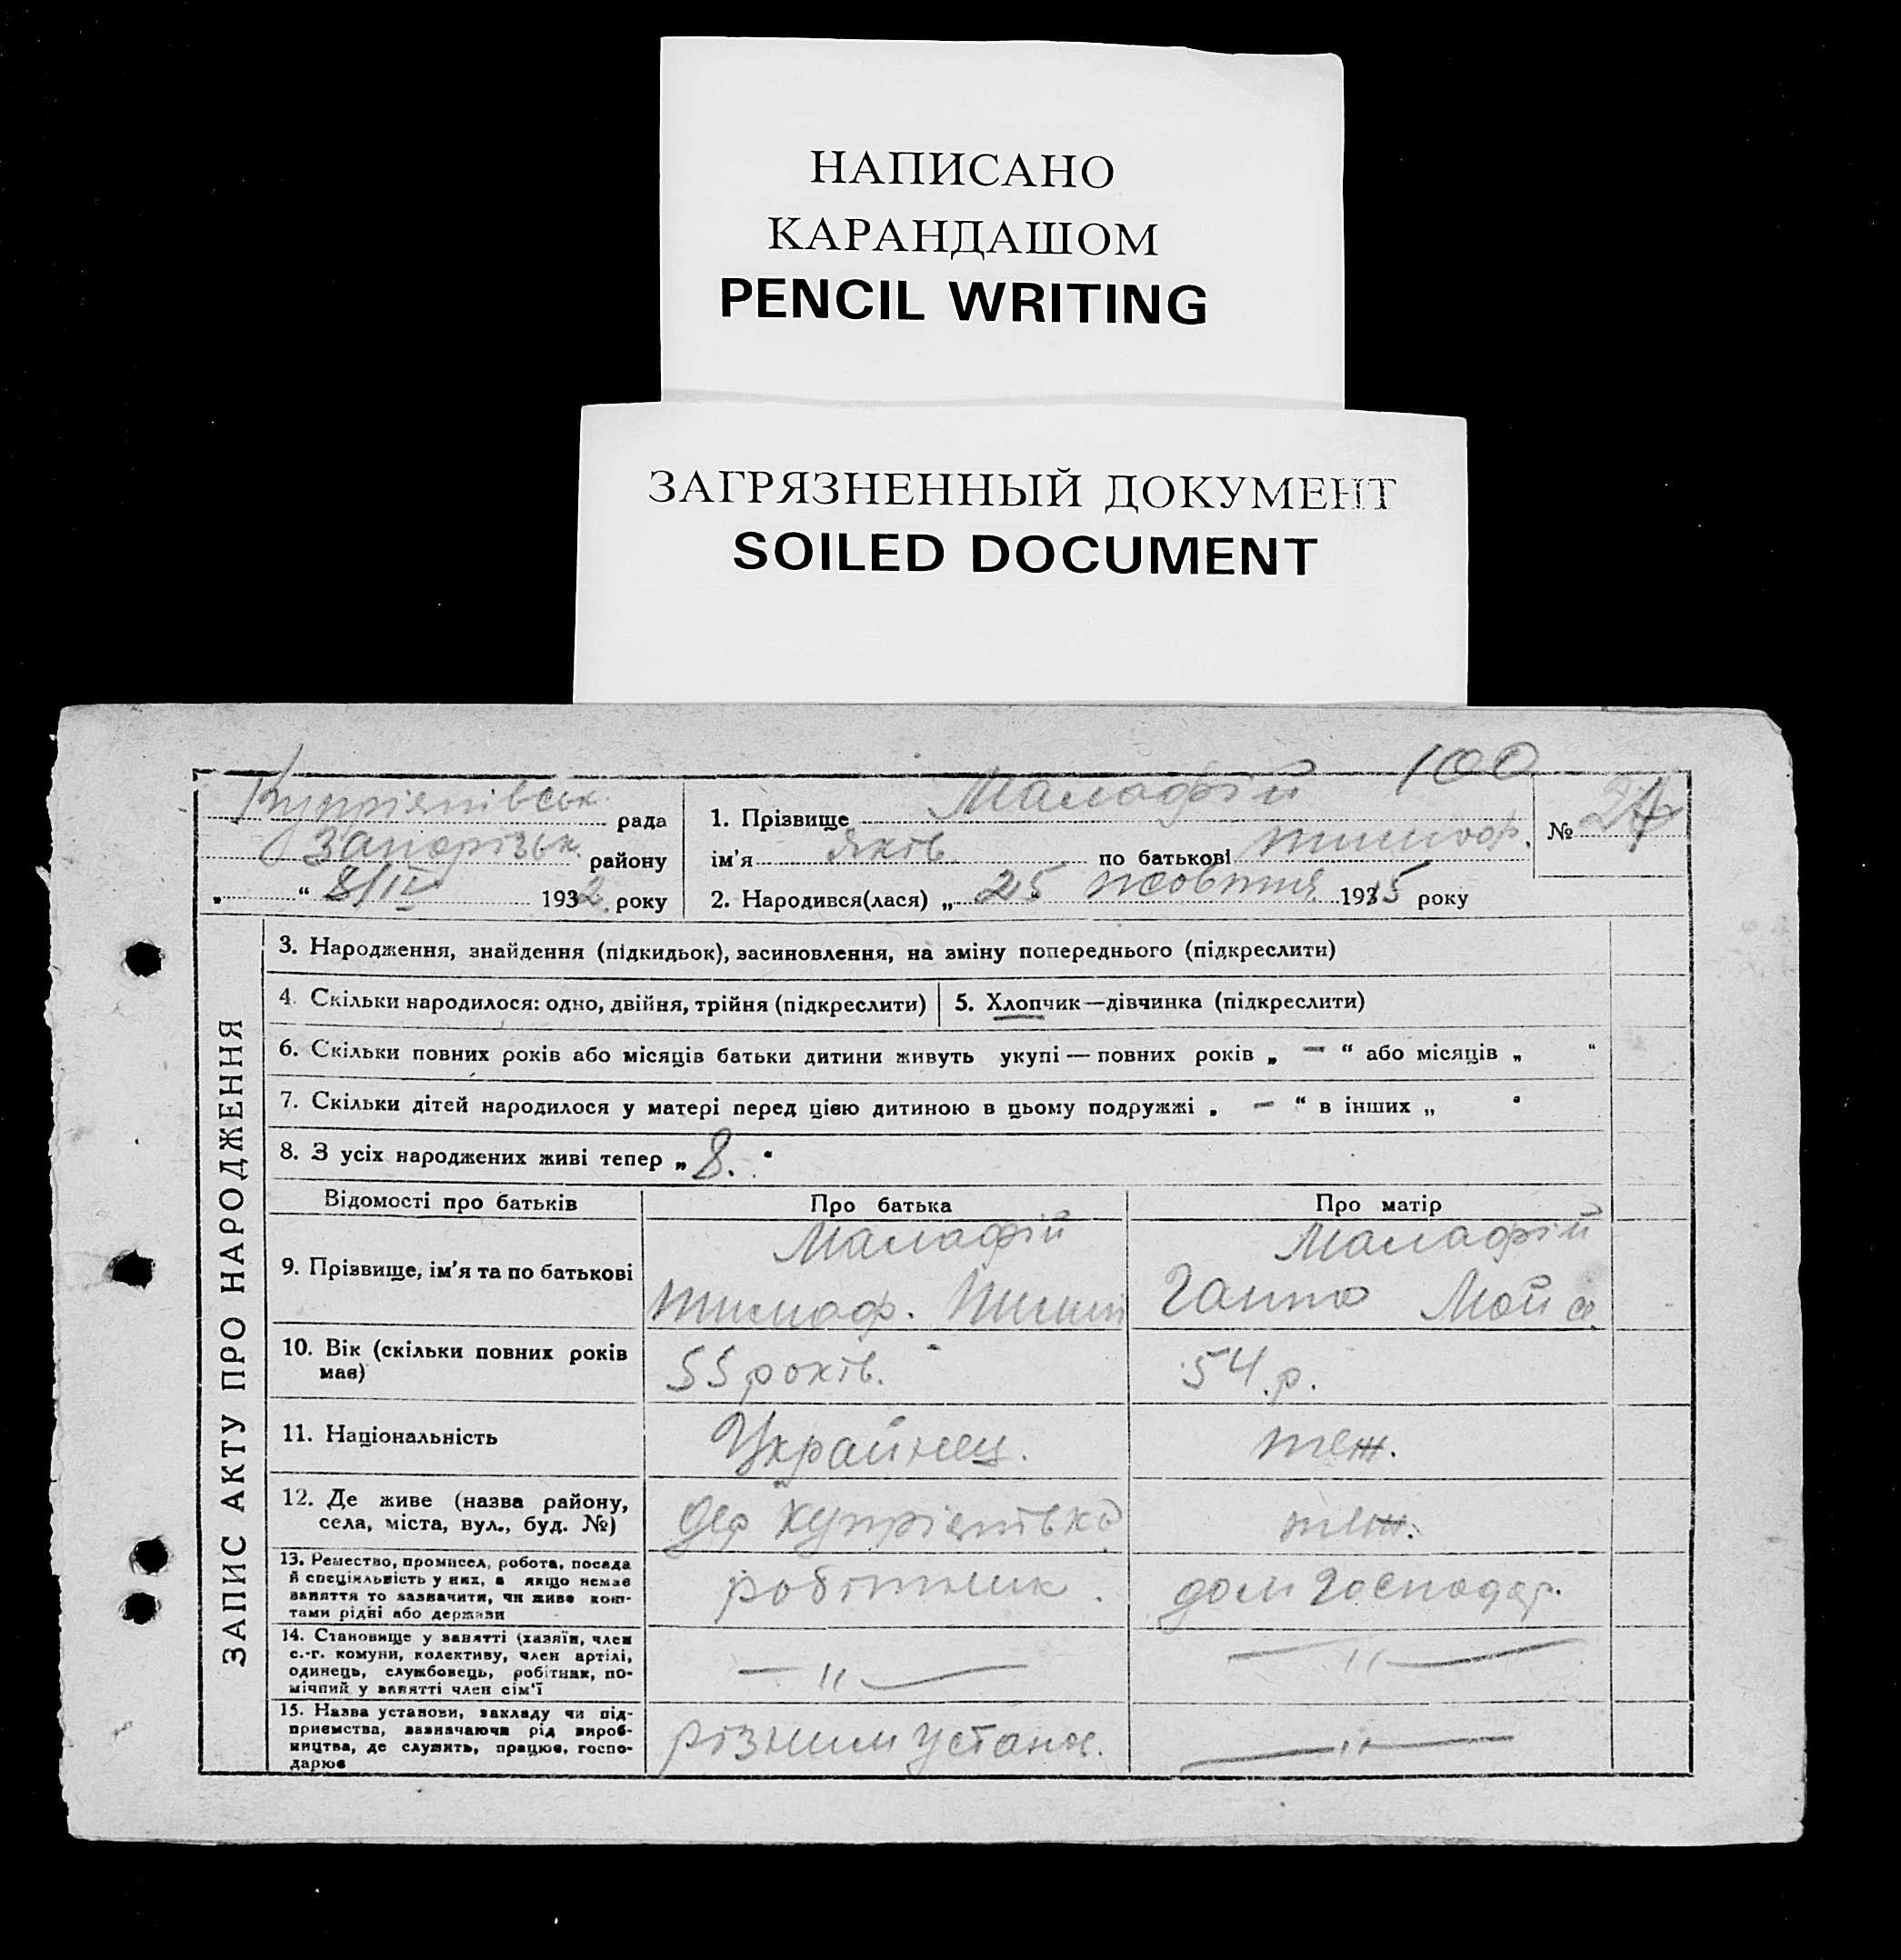 НАПИСАНО
КАРАНДАШОМ
PENCIL WRITING
ЗАГРЯЗНЕННЫЙ ДОКУМЕНТ
SOILED DOCUMENT
100
Купріянівськ. рада
Запорізьк. району
„ “ 8/IV 1932 року
1. Прізвище Малафій
ім'я Яків по батькові Тимоф.
№
2. Народився(лася) „ 25 жовтня 1915 року
ЗАПИС АКТУ ПРО НАРОДЖЕННЯ
3. Народження, знайдення (підкидьок), засиновлення, на зміну попереднього (підкреслити)
4. Скільки народилося: одно, двійня, трійня (підкреслити)
5. Хлопчик—дівчинка (підкреслити)
6. Скільки повних років або місяців батьки дитини живуть укупі — повних років „ — “ або місяців „ “
7. Скільки дітей народилося у матері перед цією дитиною в цьому подружжі „ — “ в інших „ “
8. З усіх народжених живі тепер „ 8. “
Відомості про батьків
Про батька
Про матір
9. Прізвище, ім'я та по батькові
Малафій
Тимоф.
Малафій
Ганна Мойс.
10. Вік (скільки повних років
має)
55 років.
54 р.
11. Національність
Українец.
теж.
12. Де живе (назва району,
села, міста, вул., буд. №)
Купріянівка
теж.
13. Ремество, промисел, робота, посада
й спеціяльність у них, а якщо немає
заняття то зазначити, чи живе кош-
тами рідні або держави
робітник.
дом господар.
14. Становище у занятті (хазяїн, член
с.-г. комуни, колективу, член артілі,
одинець, службовець, робітник, по-
мічний у занятті член сім'ї
— " —
— " —
15. Назва установи, закладу чи під-
приємства, зазначаючи рід вироб-
ництва, де служить, працює, госпо-
дарює
різним установ.
— " —